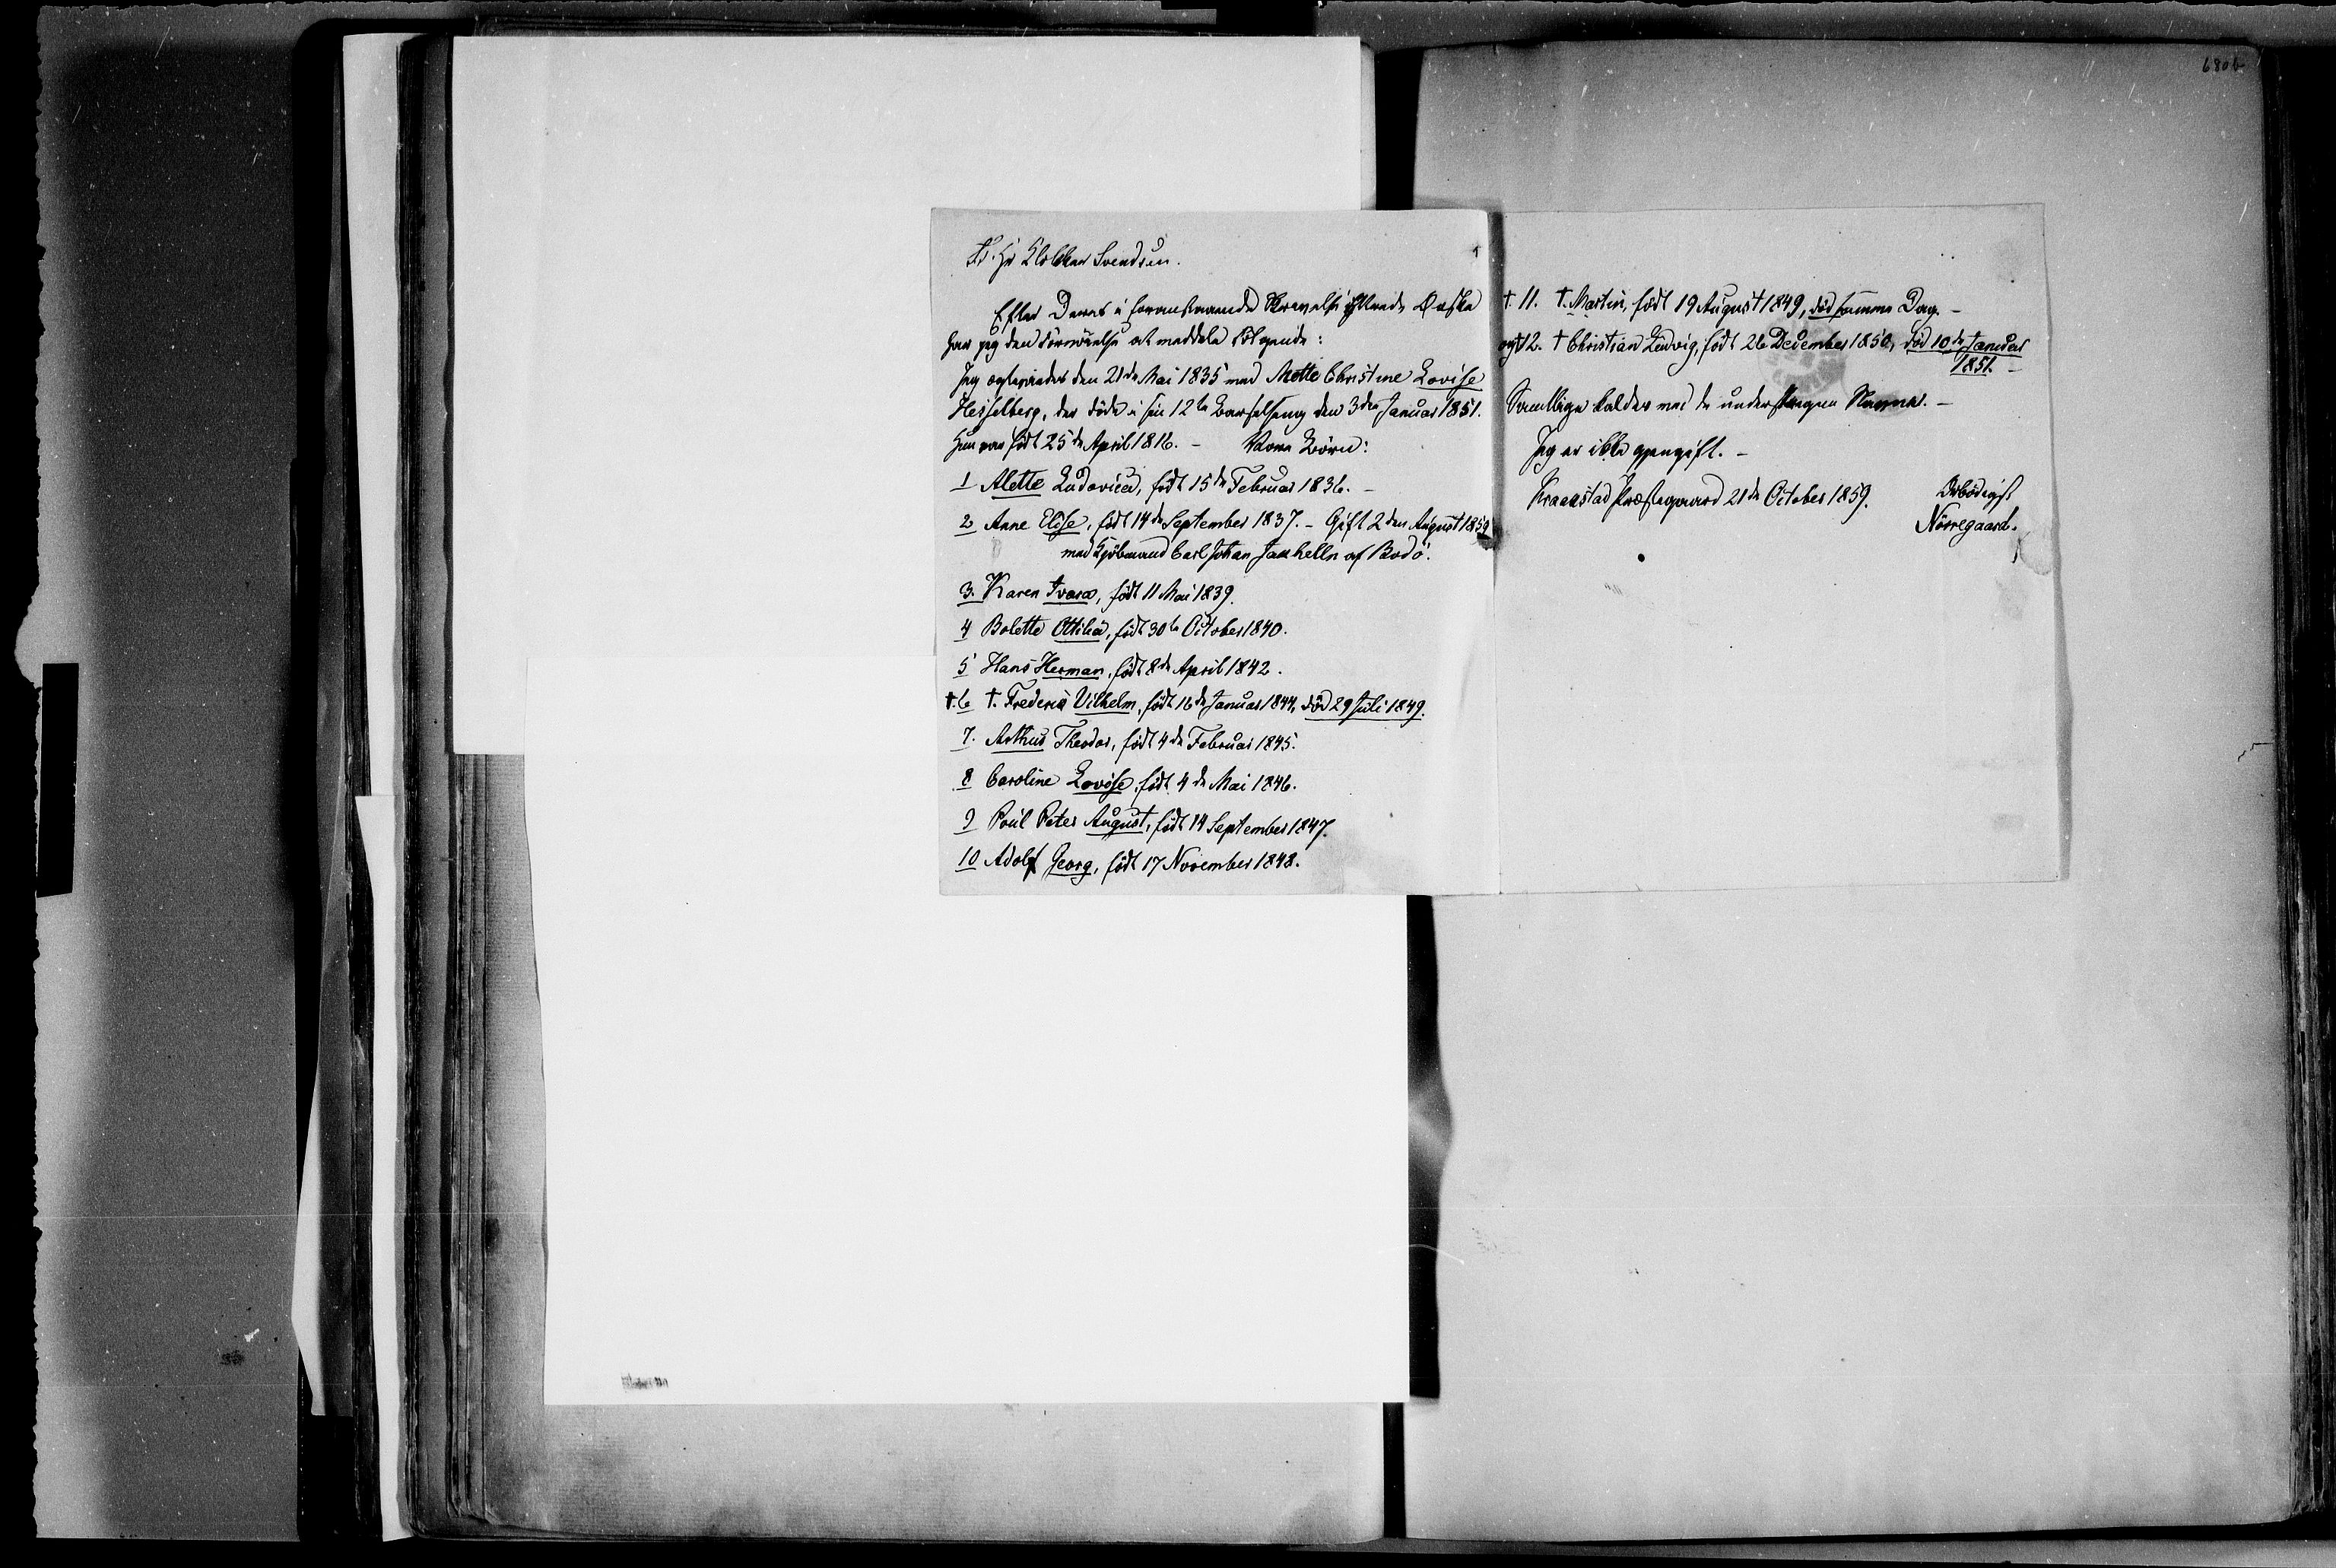 680b
Hr Klokker Svendsen.
Efter Deres i foranstaaende Skrivelse yttrede Ønske
har jeg den Fornöielse at meddele Fölgende:
Jeg ægteviedes den 21de Mai 1835 med Mette Christine Lovise
Hesselberg, der döde i sin 12te Barselseng den 3die Januar 1851.
Hun var födt 25de April 1816. - Vore Börn:
1 Alette Ludovica, födt 15de Februar 1836. -
2 Anne Elise, födt 14de September 1837. - Gift 2den August 1859
med Kjöbmand Carl Johan Jakhelln af Bodö.
3. Karen Ivara, födt 11 Mai 1839.
4 Bolette Ottilia, födt 30te October 1840.
5 Hans Herman, födt 8de April 1842.
†.6 †. Frederik Vilhelm, födt 16de Januar 1844, död 29 Juli 1849.
7. Arthur Theodor, födt 4de Februar 1845.
8 Caroline Lovise, födt 4de Mai 1846.
9 Poul Peter August, födt 14 September 1847.
10 Adolf Georg, födt 17 November 1848.
†. 11. †. Martin, födt 19 August 1849, död samme Dag. -
og †12. † Christian Ludvig, födt 26 December 1850, död 10de Januar
1851. -
Samtlige kaldes med de understregne Navne. -
Jeg er ikke gjengift. -
Kraakstad Præstegaard 21de October 1859.
Ærbödigst
Nörregaard.